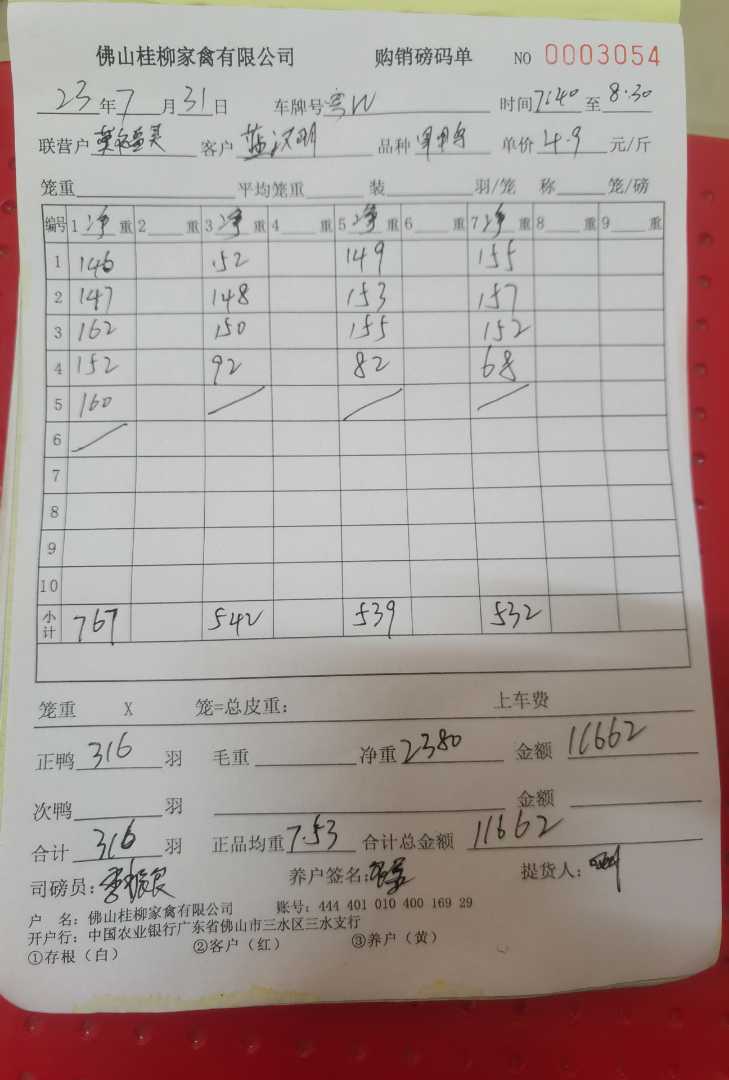 佛山桂柳家禽有限公司 购销磅码单 NO 0003054
23年7月31日 车牌号 时间7:40至8:30
联营户 客户 品种 单价4.9元/斤
笼重 平均笼重 装 羽/笼 称 笼/磅
编号 1净重 2重 3净重 4重 5净重 6重 7净重 8重 9重
1 146 152 149 155
2 147 148 153 157
3 162 150 155 152
4 152 92 82 68
5 160
6
7
8
9
10
小计 767 542 539 532
笼重 X 笼=总皮重: 上车费
正鸭316羽 毛重 净重2380 金额11662
次鸭 羽 金额
合计316羽 正品均重7.53 合计总金额11662
司磅员: 养户签名: 提货人:
户 名:佛山桂柳家禽有限公司 账号:444 401 010 400 169 29
开户行:中国农业银行广东省佛山市三水区三水支行
①存根(白) ②客户(红) ③养户(黄)